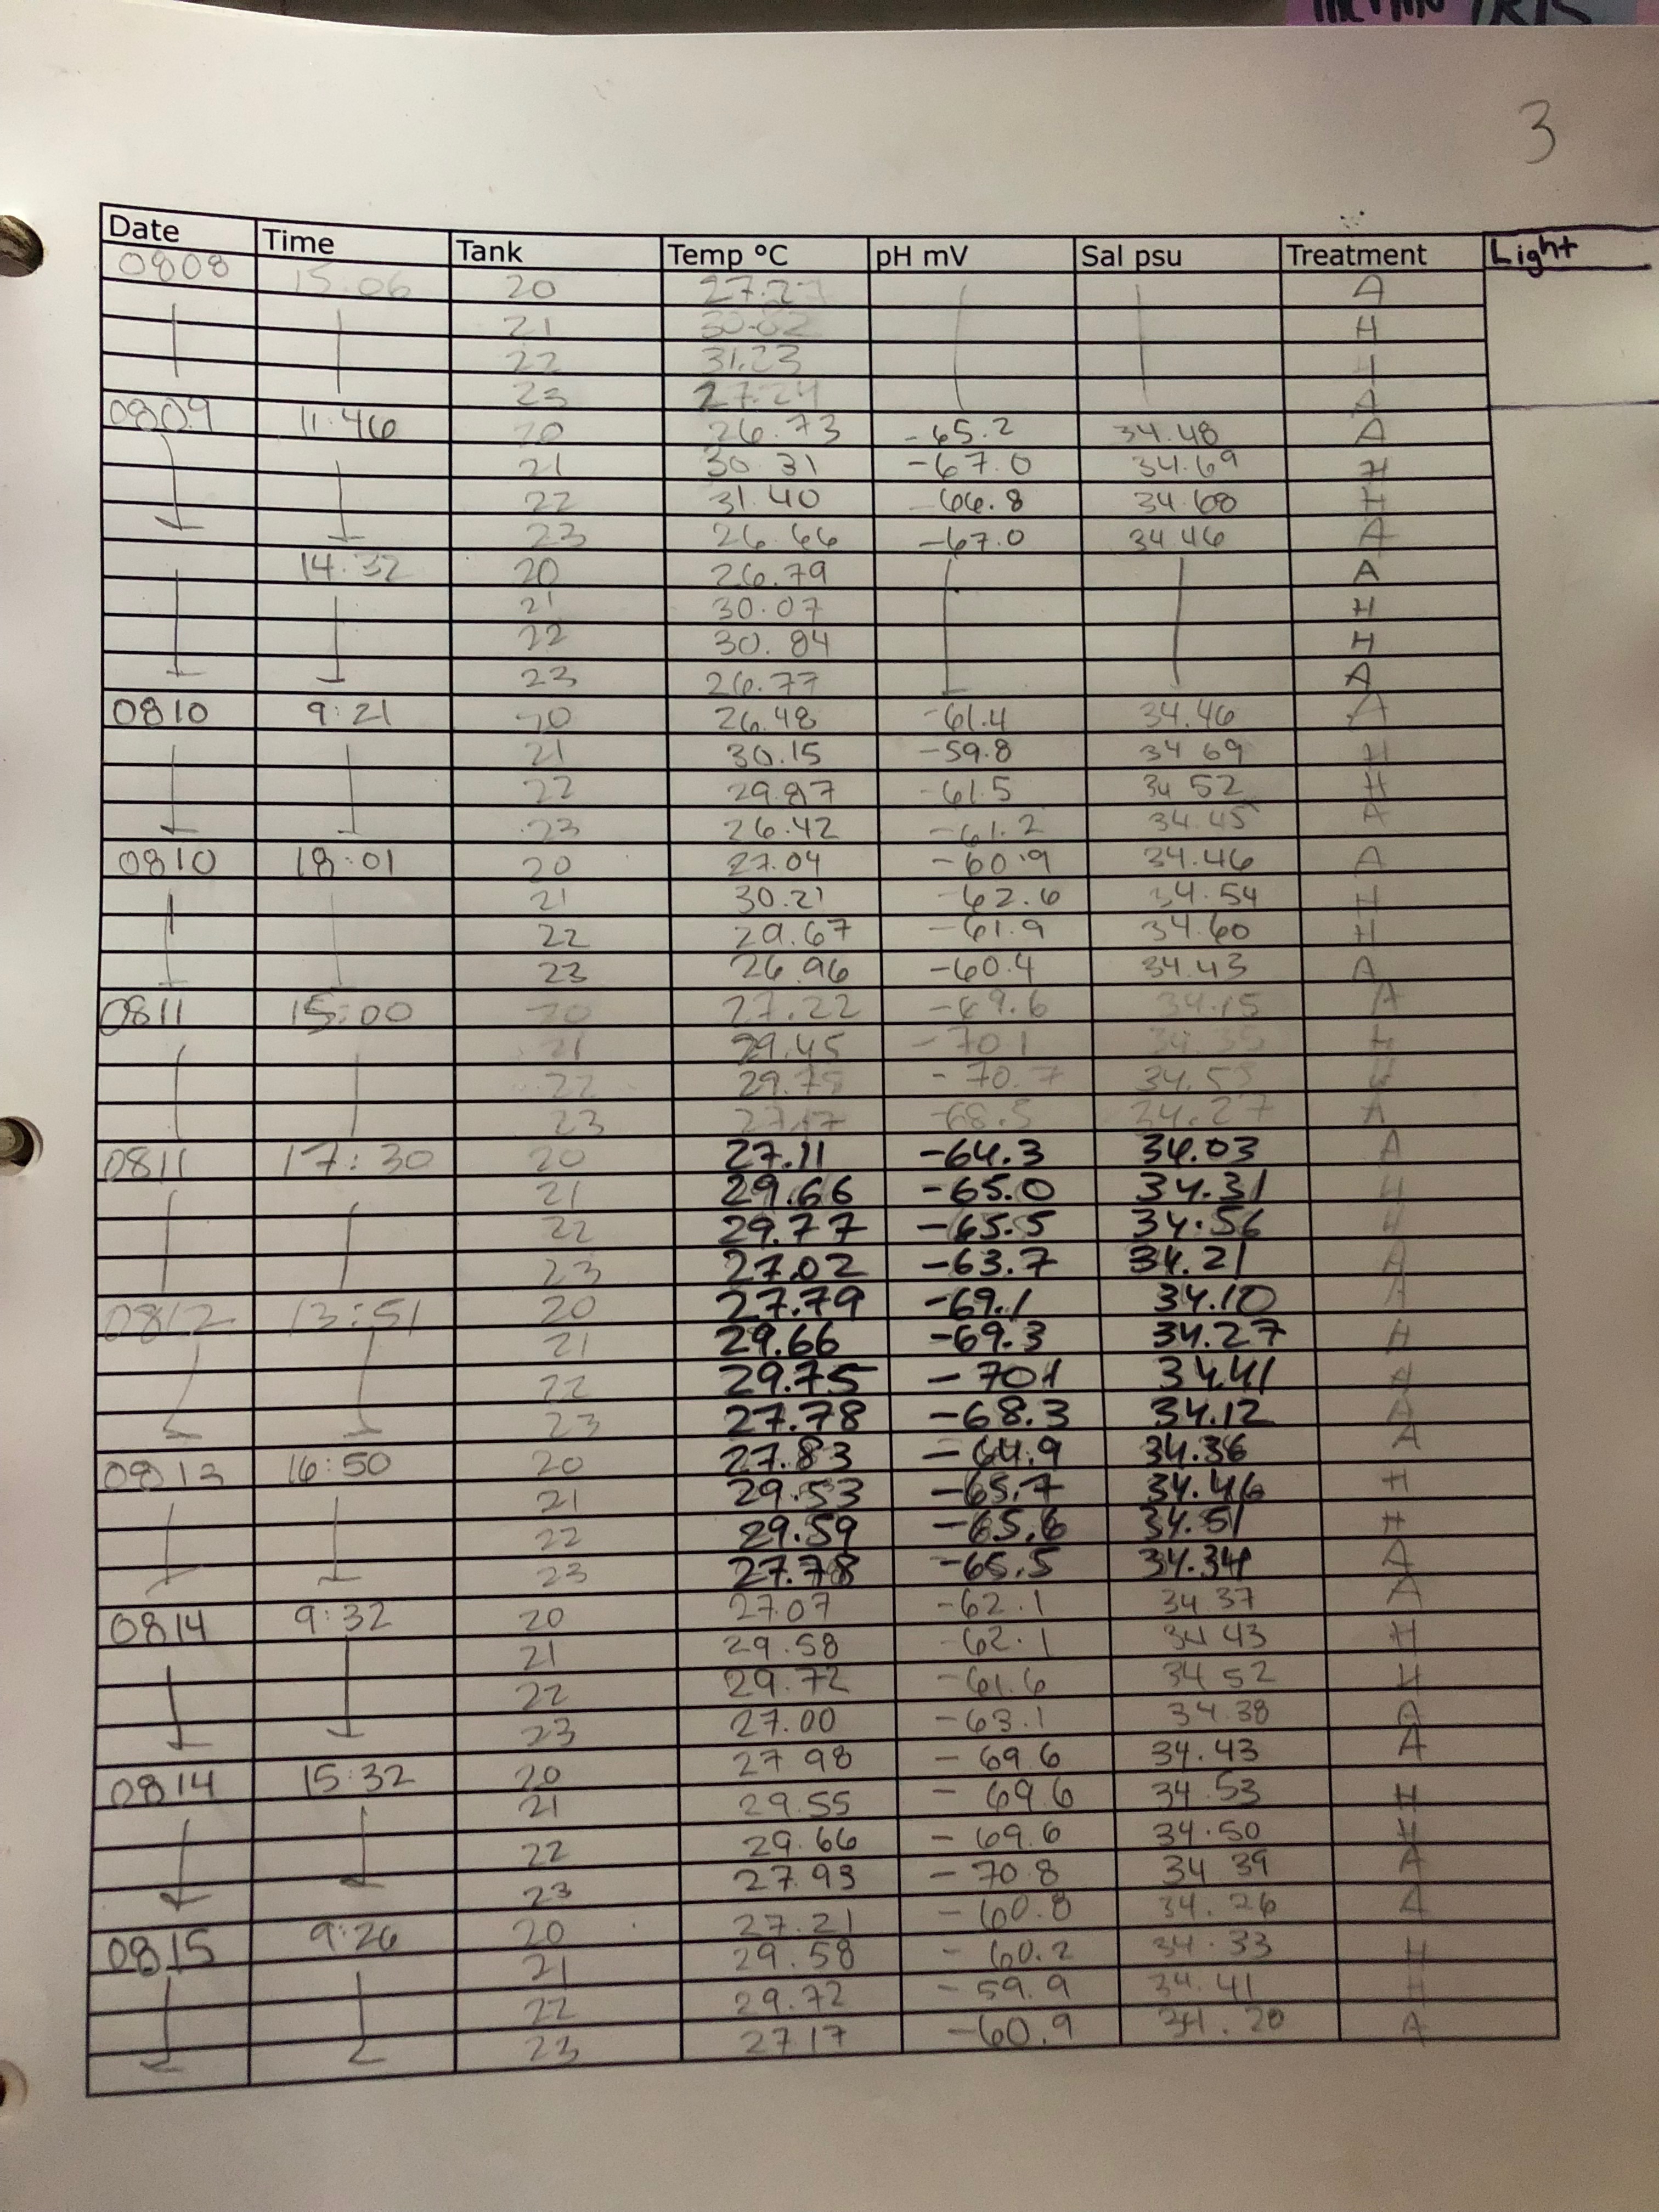 3
Date Time Tank Temp °C pH mV Sal psu Treatment Light
0808 15:06 20 27.2 A
21 30.02 H
22 31.23 H
23 27.24 A
0809 11:46 20 26.73 -65.2 34.48 A
21 30.31 -67.0 34.69 H
22 31.40 -66.8 34.68 H
23 26.66 -67.0 34.46 A
14:32 20 26.79 A
21 30.07 H
22 30.84 H
23 26.77 A
0810 9:21 20 26.48 -61.4 34.46 A
21 30.15 -59.8 34 69 H
22 29.87 -61.5 34 52 H
23 26.42 -61.2 34.45 A
0810 18:01 20 27.04 -60.9 34.46 A
21 30.21 -62.6 34.54 H
22 29.67 -61.9 34.60 H
23 26.96 -60.4 34.43 A
0811 15:00 20 27.22 -69.6 34.15 A
21 29.45 -70.1 34.35 H
22 29.75 -70.7 34.55 H
23 27.17 -68.5 34.27 A
0811 17:30 20 27.11 -64.3 34.03 A
21 29.66 -65.0 34.31 H
22 29.77 -65.5 34.56 H
23 27.02 -63.7 34.21 A
0812 13:51 20 27.79 -69.1 34.10 A
21 29.66 -69.3 34.27 H
22 29.75 -70.1 34.41 H
23 27.78 -68.3 34.12 A
0813 16:50 20 27.83 -64.9 34.36 A
21 29.53 -65.7 34.46 H
22 29.59 -65.6 34.51 H
23 27.78 -65.5 34.34 A
0814 9:32 20 27.07 -62.1 34 37 A
21 29.58 -62.1 34 43 H
22 29.72 -61.6 34 52 H
23 27.00 -63.1 34.38 A
0814 15:32 20 27 98 -69.6 34.43 A
21 29.55 -69.6 34.53 H
22 29.66 -69.6 34.50 H
23 27.93 -70.8 34 39 A
0815 9:26 20 27.21 -60.8 34.26 A
21 29.58 -60.2 34.33 H
22 29.72 -59.9 34.41 H
23 27 17 -60.9 34.20 A